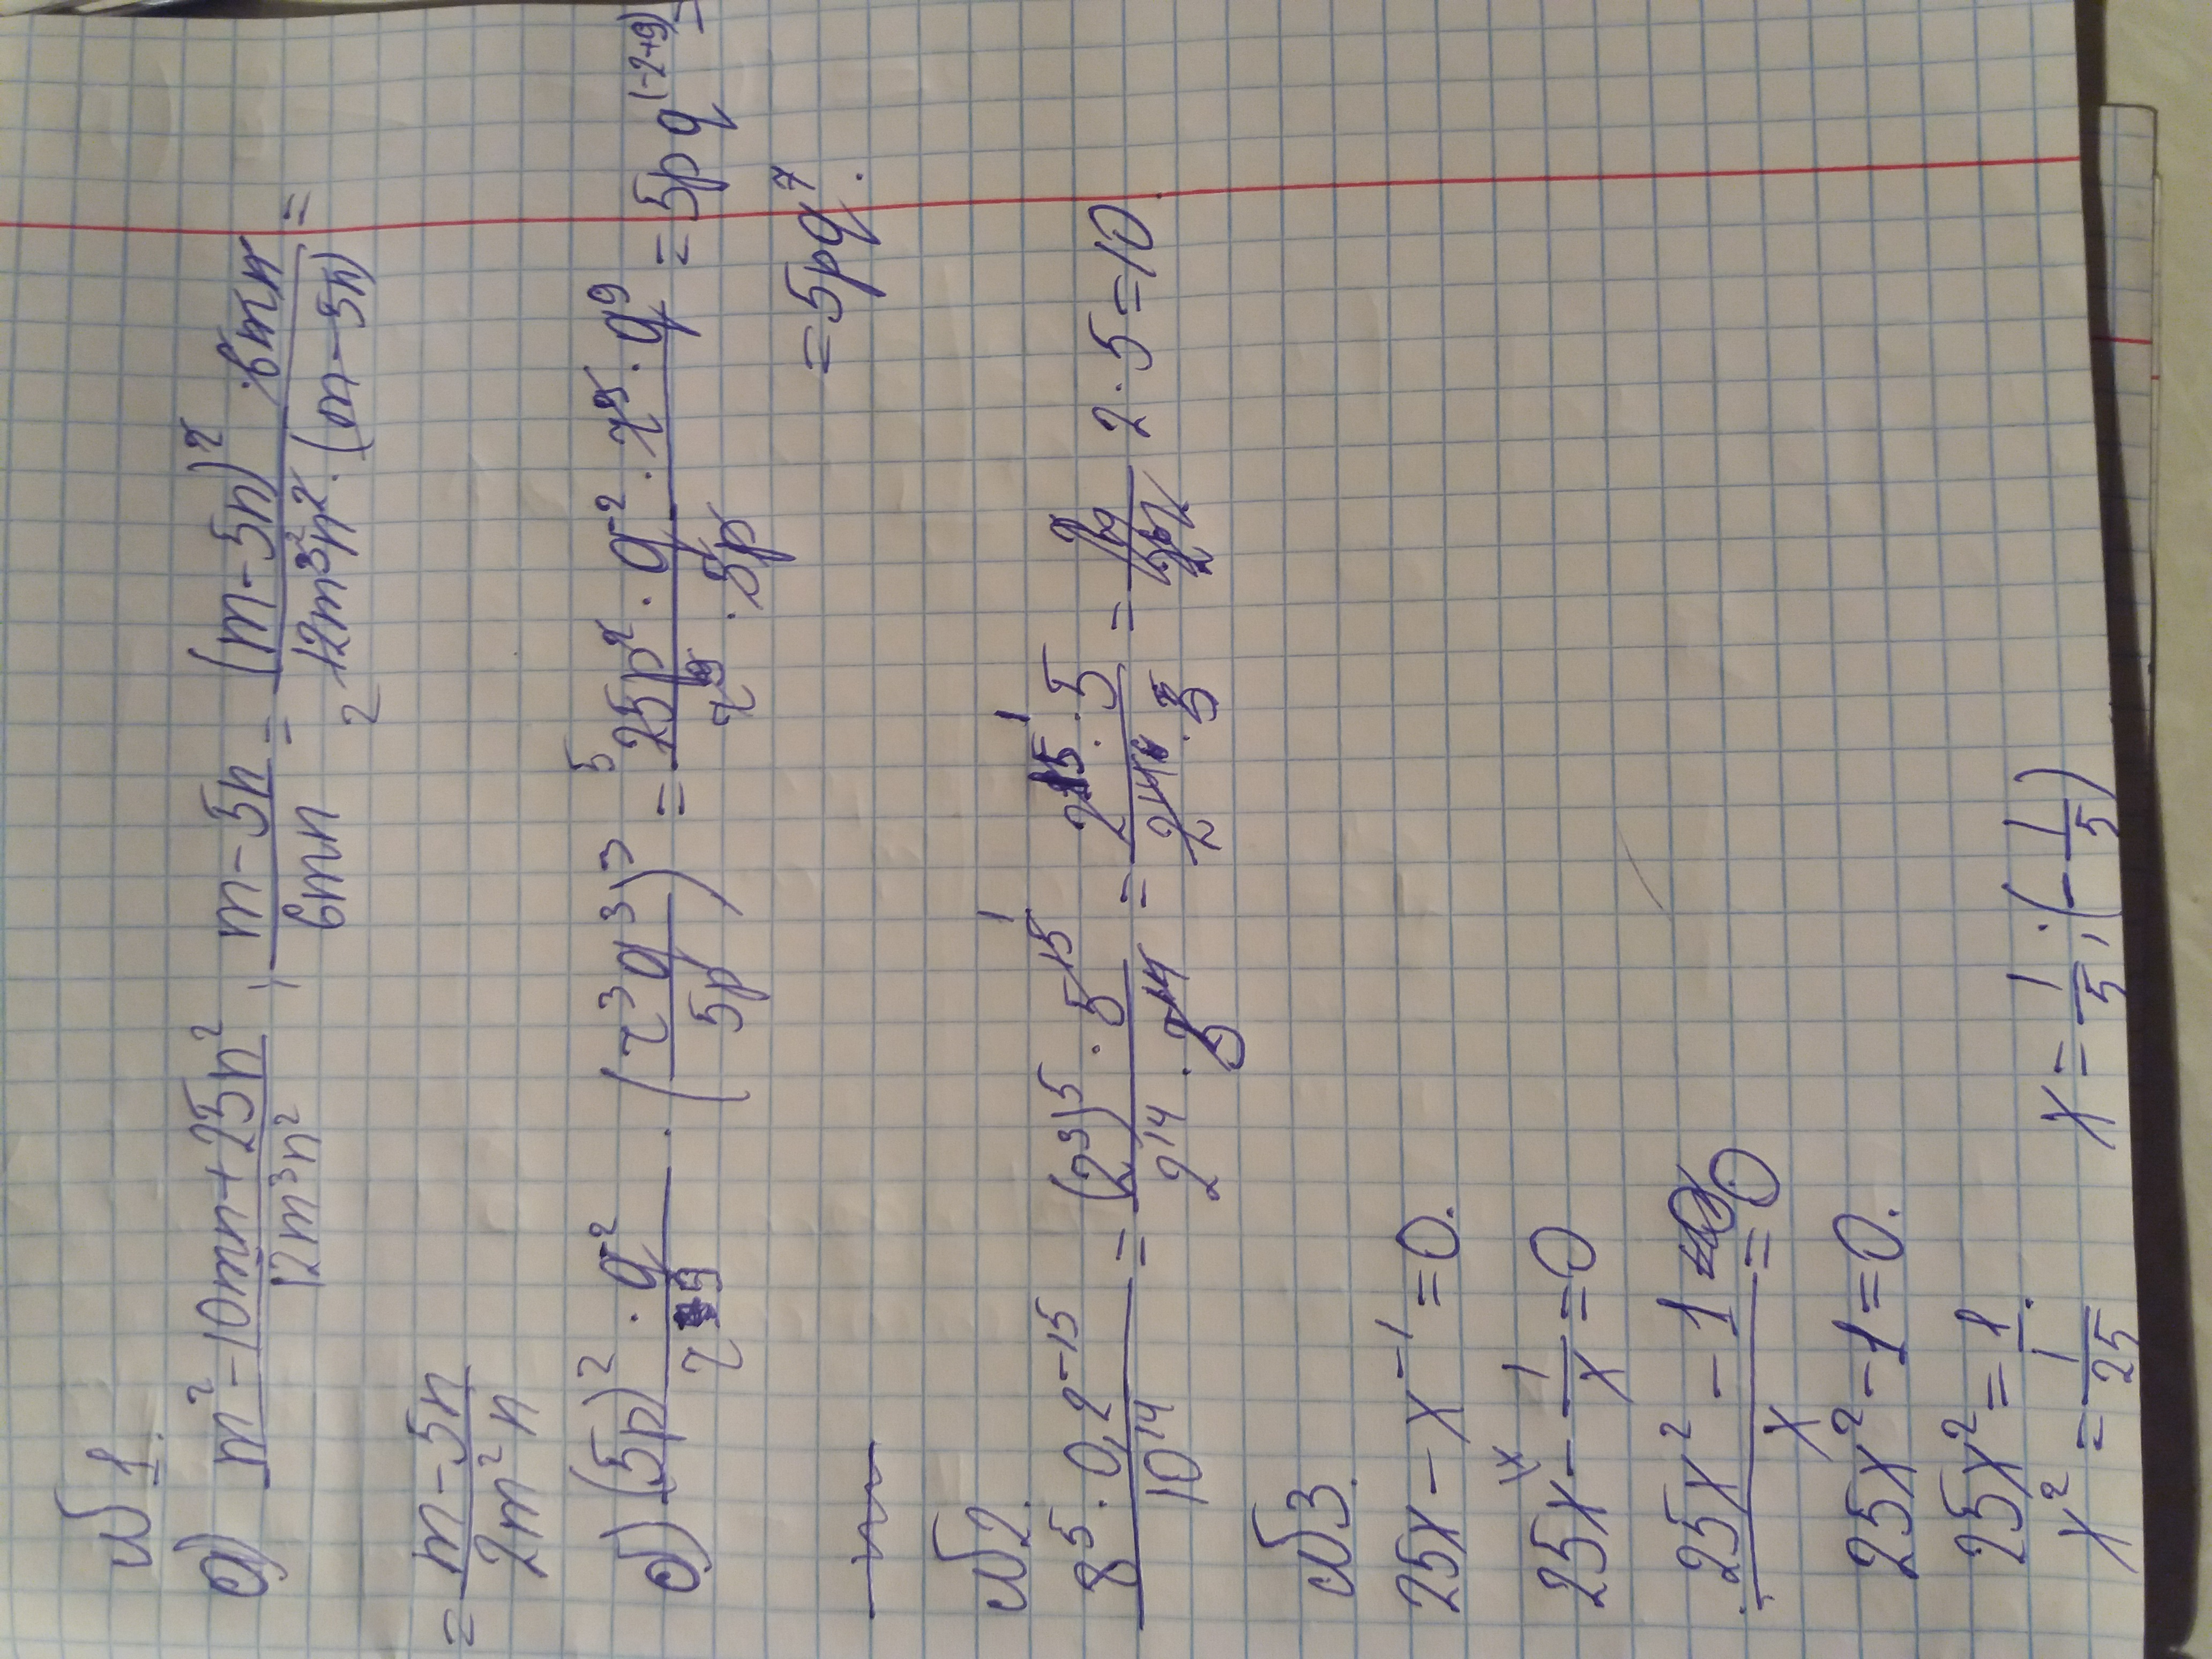 №1.
а) (m² - 10mn + 25n²)/(12m³n²) : (m - 5n)/(6mn) = ((m - 5n)² · 6mn)/(12m³n² · (m - 5n)) =
= (m - 5n)/(2m²n)
б) ((5p)² · q⁻²)/(r⁹) · (r³q³/5p)³ = (25p² · q⁻² · r⁹ · q⁹)/(r⁹ · 5p) = 5pq^(-2+9) =
= 5pq⁷.
№2.
(8⁵ · 0,2⁻¹⁵)/10¹⁴ = ((2³)⁵ · 5¹⁵)/(2¹⁴ · 5¹⁴) = (2¹⁵ · 5)/(2¹⁴) = 2 · 5 = 10
№3.
25x - x⁻¹ = 0.
25x - 1/x = 0
(25x² - 1)/x = 0
25x² - 1 = 0.
25x² = 1.
x² = 1/25 x = 1/5; (-1/5)